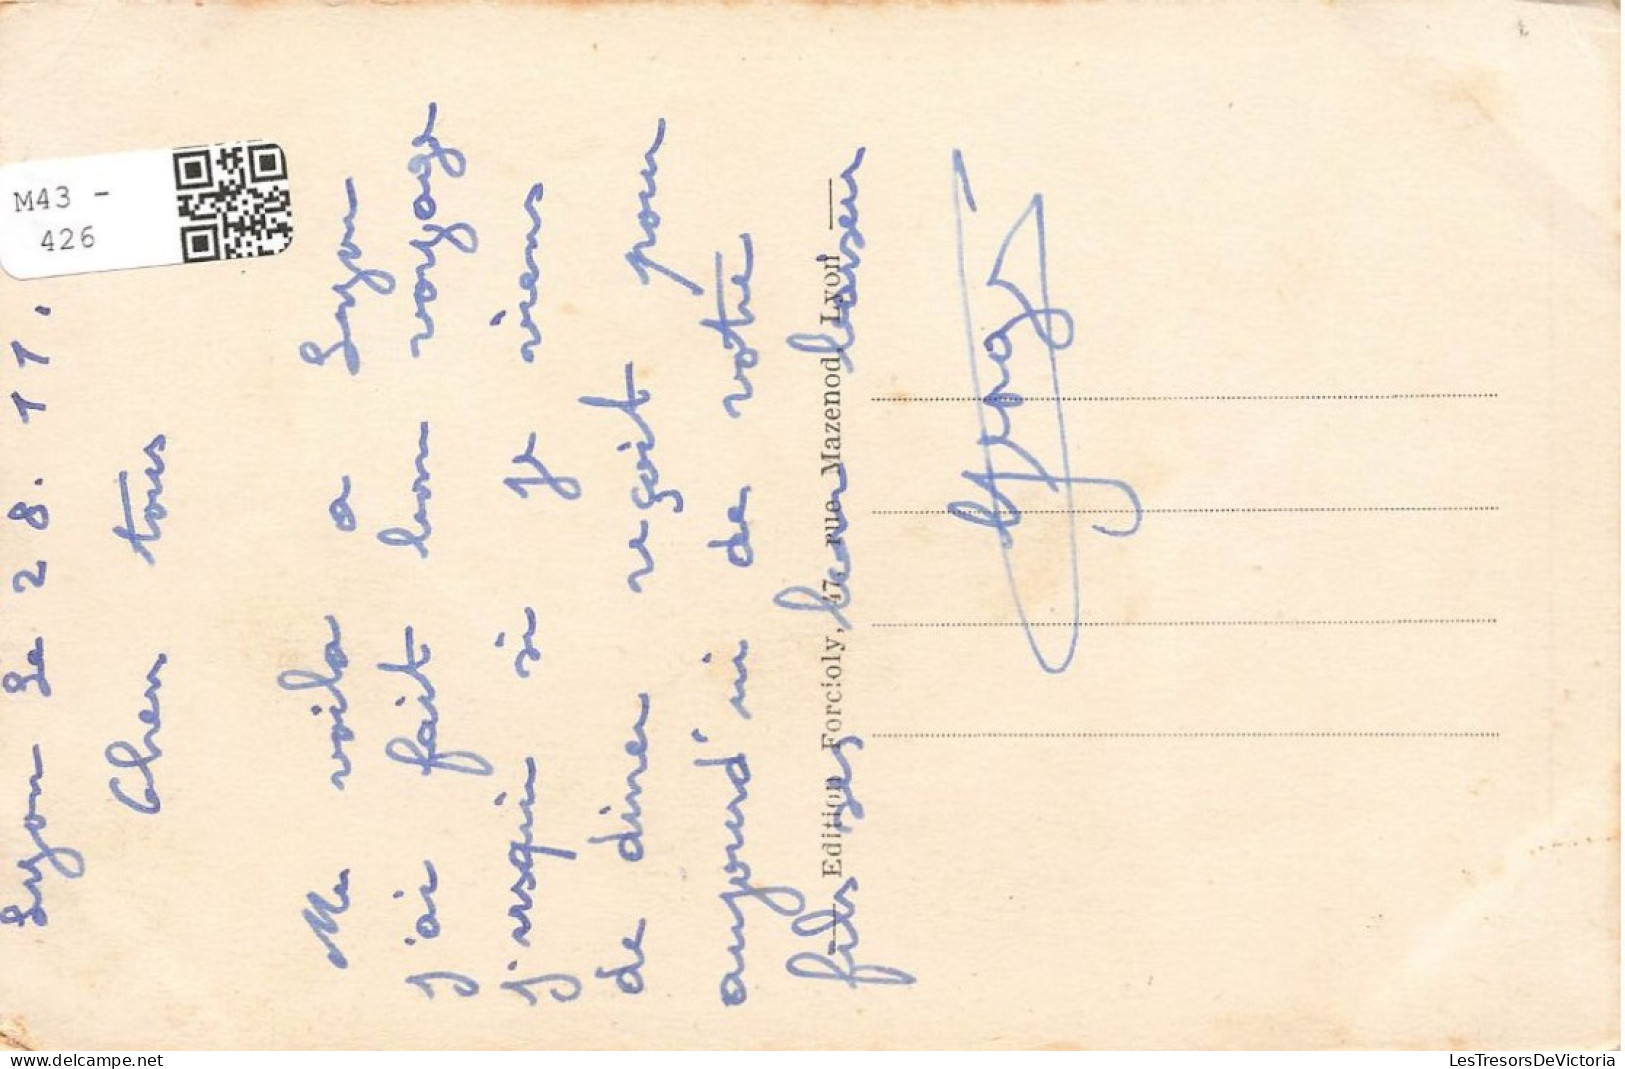 Lyon Le 28. 11.
Cher tous
Me voila a Lyon
j'ai fait bon voyage
j'usqu'in si je viens
de diner reçoit pour
aujourd'ui de votre
fils ses bon baiser
Edition Forcioly, 47, rue Mazenod, Lyon
M43 -
426
delcampe.net
LesTresorsDeVictoria